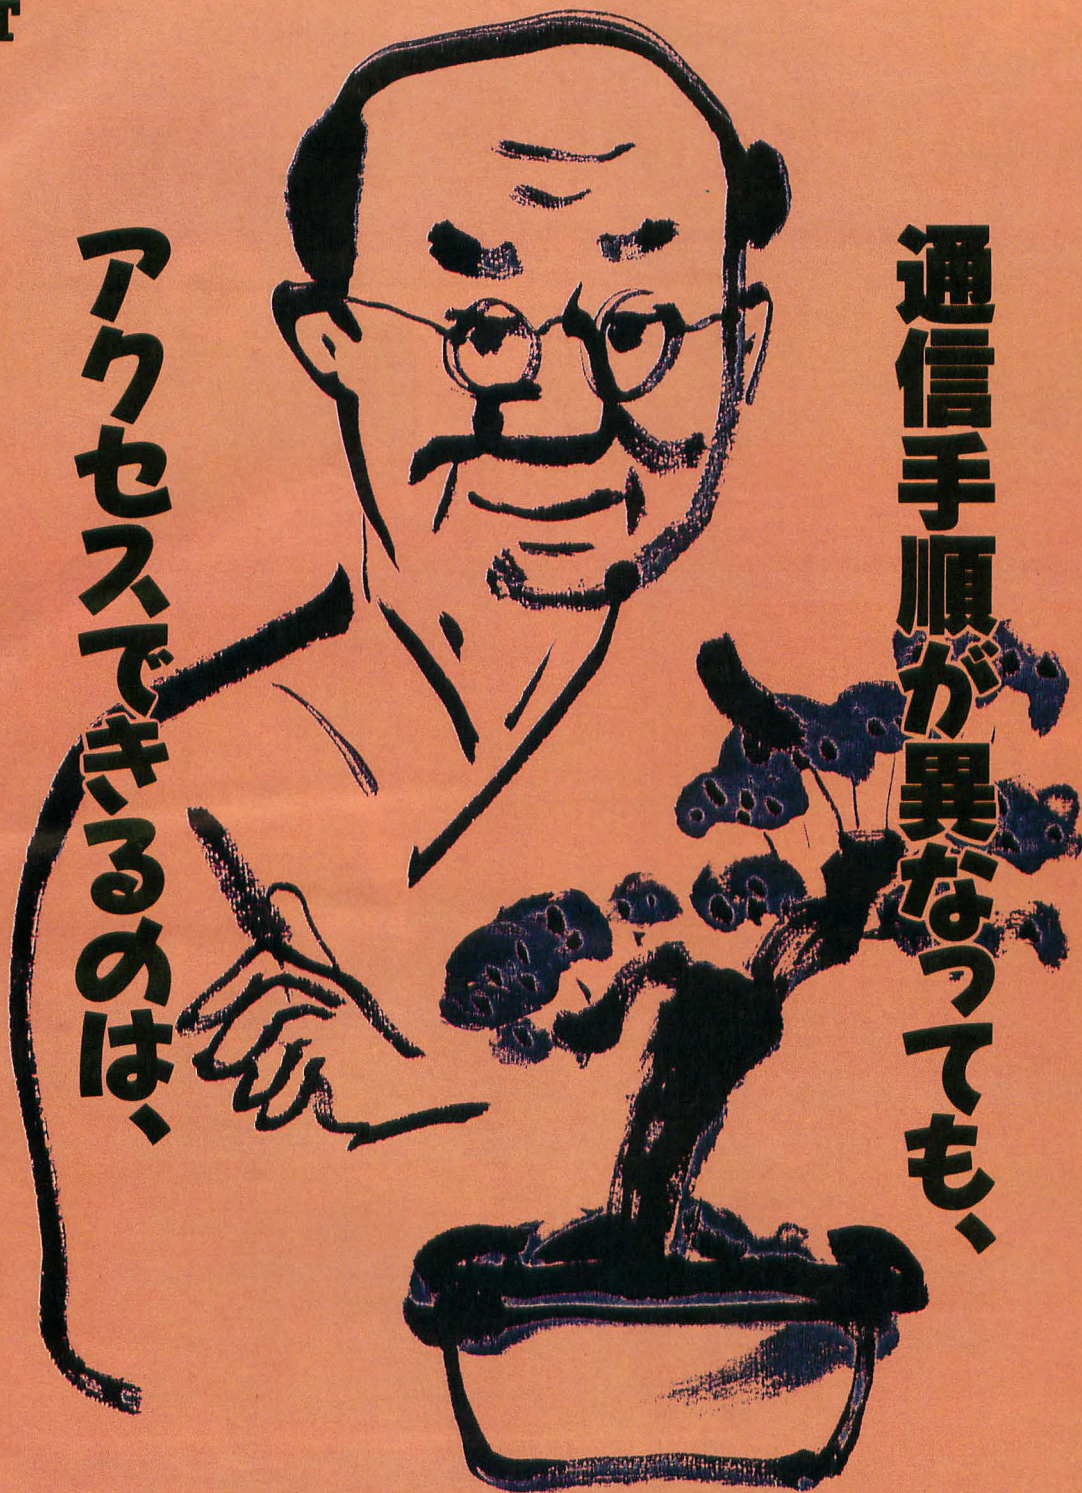 通信手順が異なっても、
アクセスできるのは、